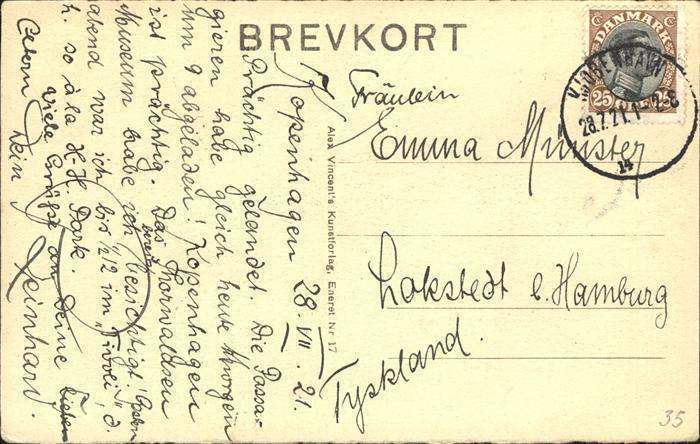 BREVKORT
DANMARK
25
KJØBENHAVN
28.7.21.
14
Fräulein
Emma Münster
Lokstedt b. Hamburg
Tyskland.
Alex Vincent's Kunstforlag, Eneret Nr 17
Kopenhagen 28. VII. 21.
Prächtig gelandet. Die Passa-
gieren habe gleich heute Morgen
um 9 abgeladen! Kopenhagen
ist prächtig. Das Thorwaldsen
Museum habe ich bereits besichtigt! Gestern
abend war ich bis 1/2 im „Tivoli", d.
h. so à la H.H. Park.
Viele Grüße an Deine lieben
Eltern Dein Reinhard.
35